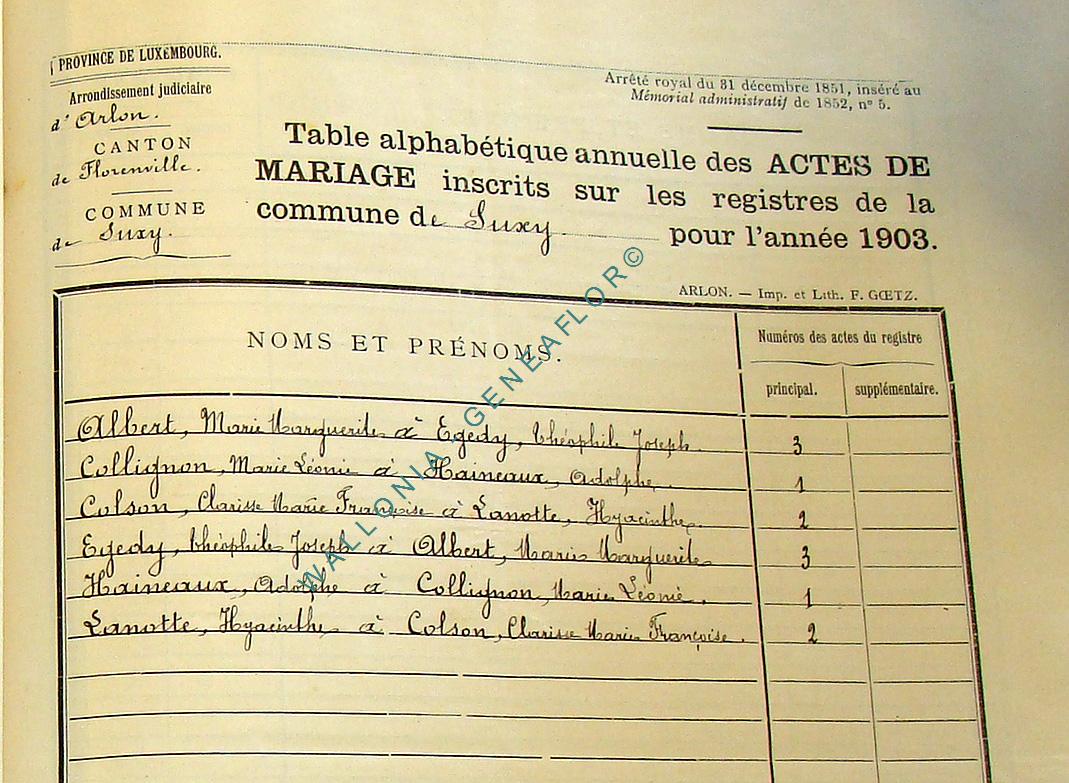 PROVINCE DE LUXEMBOURG.
Arrondissement judiciaire
d'Arlon.
CANTON
de Florenville.
COMMUNE
de Suxy.
Arrêté royal du 31 décembre 1851, inséré au
Mémorial administratif de 1852, nº 5.
Table alphabétique annuelle des ACTES DE
MARIAGE inscrits sur les registres de la
commune de Suxy pour l'année 1903.
ARLON. — Imp. et Lith. F. GŒTZ.
NOMS ET PRÉNOMS.
Numéros des actes du registre
principal. supplémentaire.
Albert, Marie Marguerite à Egedy, Théophile Joseph 3
Collignon, Marie Léonie à Haineaux, Adolphe. 1
Colson, Clarisse Marie Françoise à Lanotte, Hyacinthe. 2
Egedy, Théophile Joseph à Albert, Marie Marguerite 3
Haineaux, Adolphe à Collignon, Marie Léonie. 1
Lanotte, Hyacinthe à Colson, Clarisse Marie Françoise. 2
WALLONIA-GENEAFLOR©